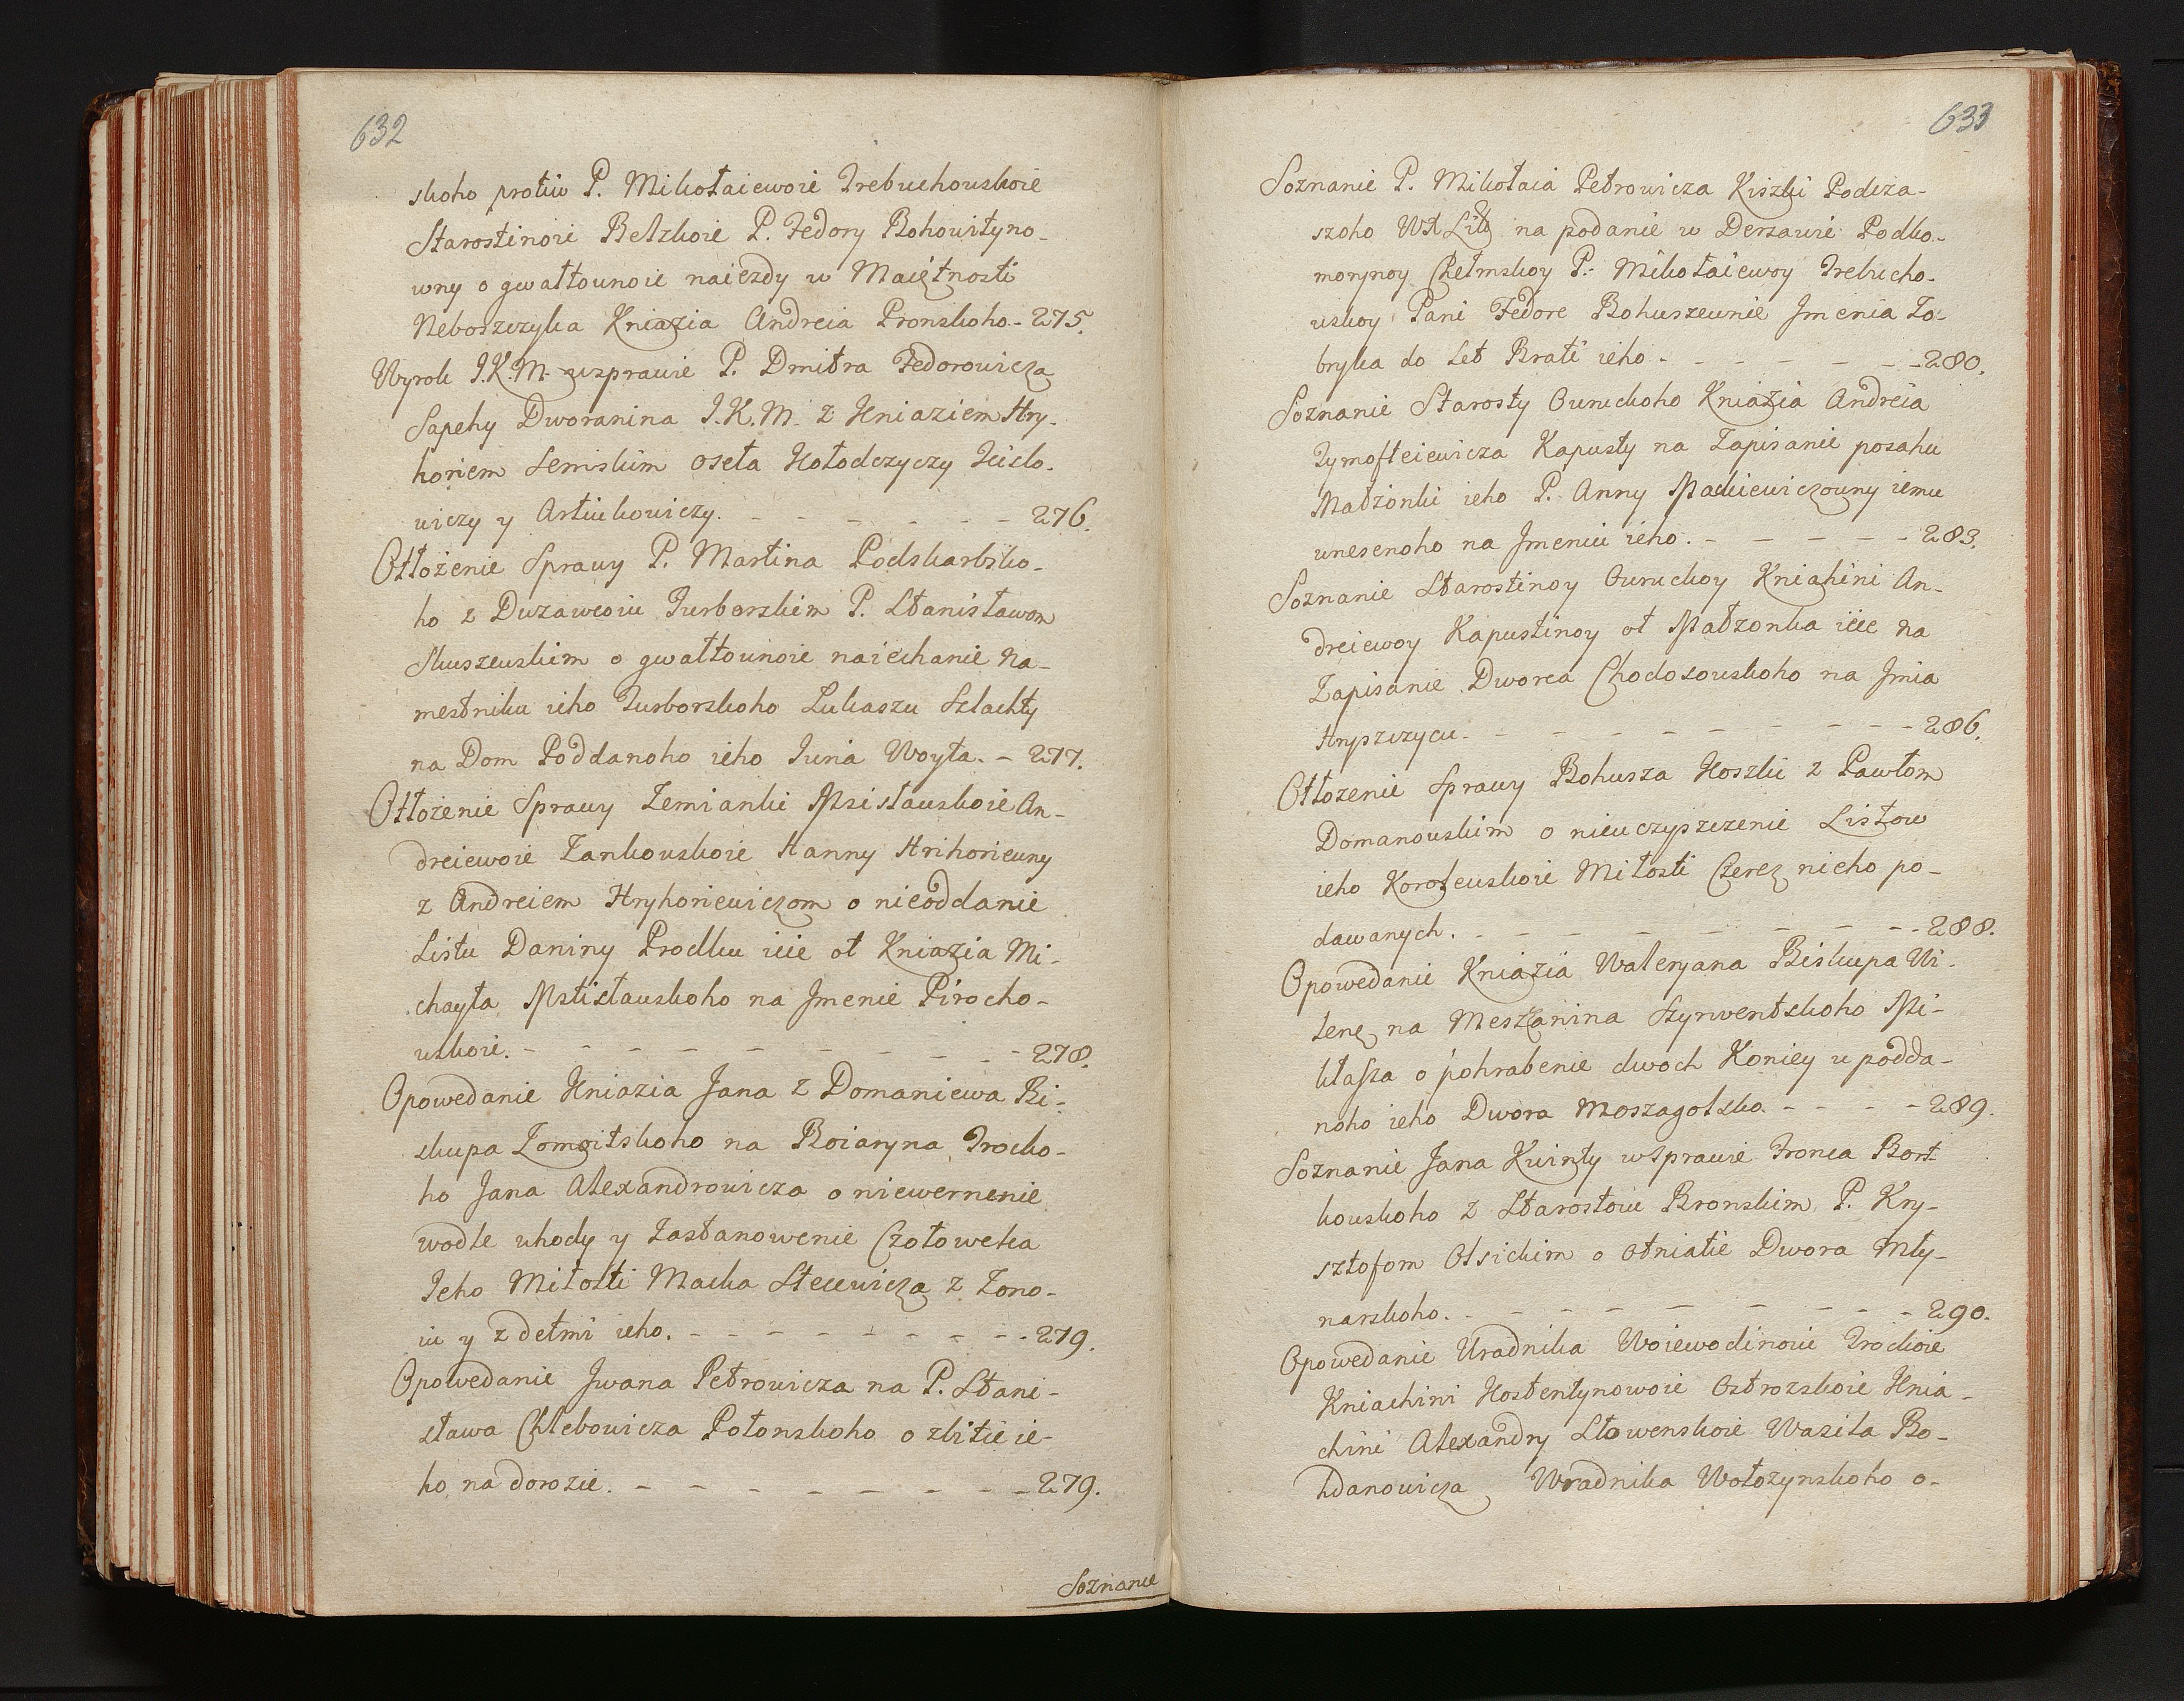 632
skoho protiw P. Mikołaiewoie Trebuchouskoie
Starostinoie Belzkoie P. Fedory Bohowityno-
wny o gwałtounoie naiezdy u Maiętnosti
Neboszczyka Kniazia Andreia Pronskoho. - 275.
Wyrok J.K.M. wsprawie P. Dmitra Fedorowicza
Sapehy Dworanina J.K.M. z Kniaziem Hry-
horiem Semskim oseła Hołodczyczy
wiczy y Artiukowiczy. - - - - - - 276.
Otłożenie Sprawy P. Martina Podskarbsko-
ho z Dwzawcoiu Jurborskim P. Stanisławom
Skuszeuskim o gwałtounoie naiechanie Na-
mestniku ieho Jurborskoho Lukaszu Szlachty
na Dom Poddanoho ieho Juria Woyta. - 277.
Otłożenie Sprawy Zemianki Mscisłauskoie An-
dreiewoie Zankouskoie Hanny Hrihoriewny
z Andreiem Hryhoriewiczom o nieoddanie
Listu Daniny Prodku ieie ot Kniazia Mi-
chayła Mstisłauskoho na Jmenie Pirocho-
uskoie. - - - - - - - - - 278.
Opowedanie Kniazia Jana z Domaniewa Bi-
skupa Żomoitskoho na Boiaryna Trocko-
ho Jana Alexandrowicza o niewernenie
wodle uhody y Zastanowenie Czołoweka
Jeho Miłosti Macka Stecewicza z Żono-
iu y z detmi ieho. - - - - - - - - 279.
Opowedanie Jwana Petrowicza na P. Stani-
sława Chlebowicza Połonskoho o zbitie ie-
ho na dorozie. - - - - - - - - 279.
Soznanie
633
Soznanie P. Mikołaia Petrowicza Kiszki Podcza-
szoho WX Lit na podanie w Derżawie Podko-
morynoy Chełmskoy P. Mikołaiewoy Trebucho-
uskoy Pani Fedore Bohuszeunie Jmenia Ło-
bryka do Let Brati ieho - - - - - - 280.
Soznanie Starosty Ouruckoho Kniazia Andreia
Tymofteiewicza Kapusty na Zapisanie posahu
Małżonki ieho P. Anny Mackiewiczouny iemu
unesenoho na Jmeniu ieho. - - - - - 283.
Soznanie Starostinoy Ouruckoy Kniahini An-
dreiewoy Kapustinoy ot Małżonka ieie na
Zapisanie Dworca Chodosouskoho na Jmia
Hryszczycu. - - - - - - - - - 286.
Otłożenie Sprawy Bohusza Hoszki z Pawłom
Domanouskim o nieuczyszczenie Listow
ieho Koroleuskoie Miłosti Czerez nieho po-
dawanych. - - - - - - - - - 288.
Opowedanie Kniazia Waleryana Biskupa Wi-
lenz na Meszzanina Szyrwentskoho Mi-
kłasza o pohrabenie dwoch Koniey u podda-
noho ieho Dwora Moszagolsko. - - - - 289.
Soznanie Jana Kwinty wsprawie Fronca Bort
kouskoho z Starostoiu Bronskim P. Kry-
sztofom Olsickim o otniatie Dwora Mły-
narskoho. - - - - - - - - - 290.
Opowedanie Uradnika Woiewodinoie Trockoie
Kniachini Kostentynowoie Ostrozskoie Knia-
chini Alexandry Słowenskoie Wasila Bo-
hdanowicza Wradnika Wołożynskoho o-